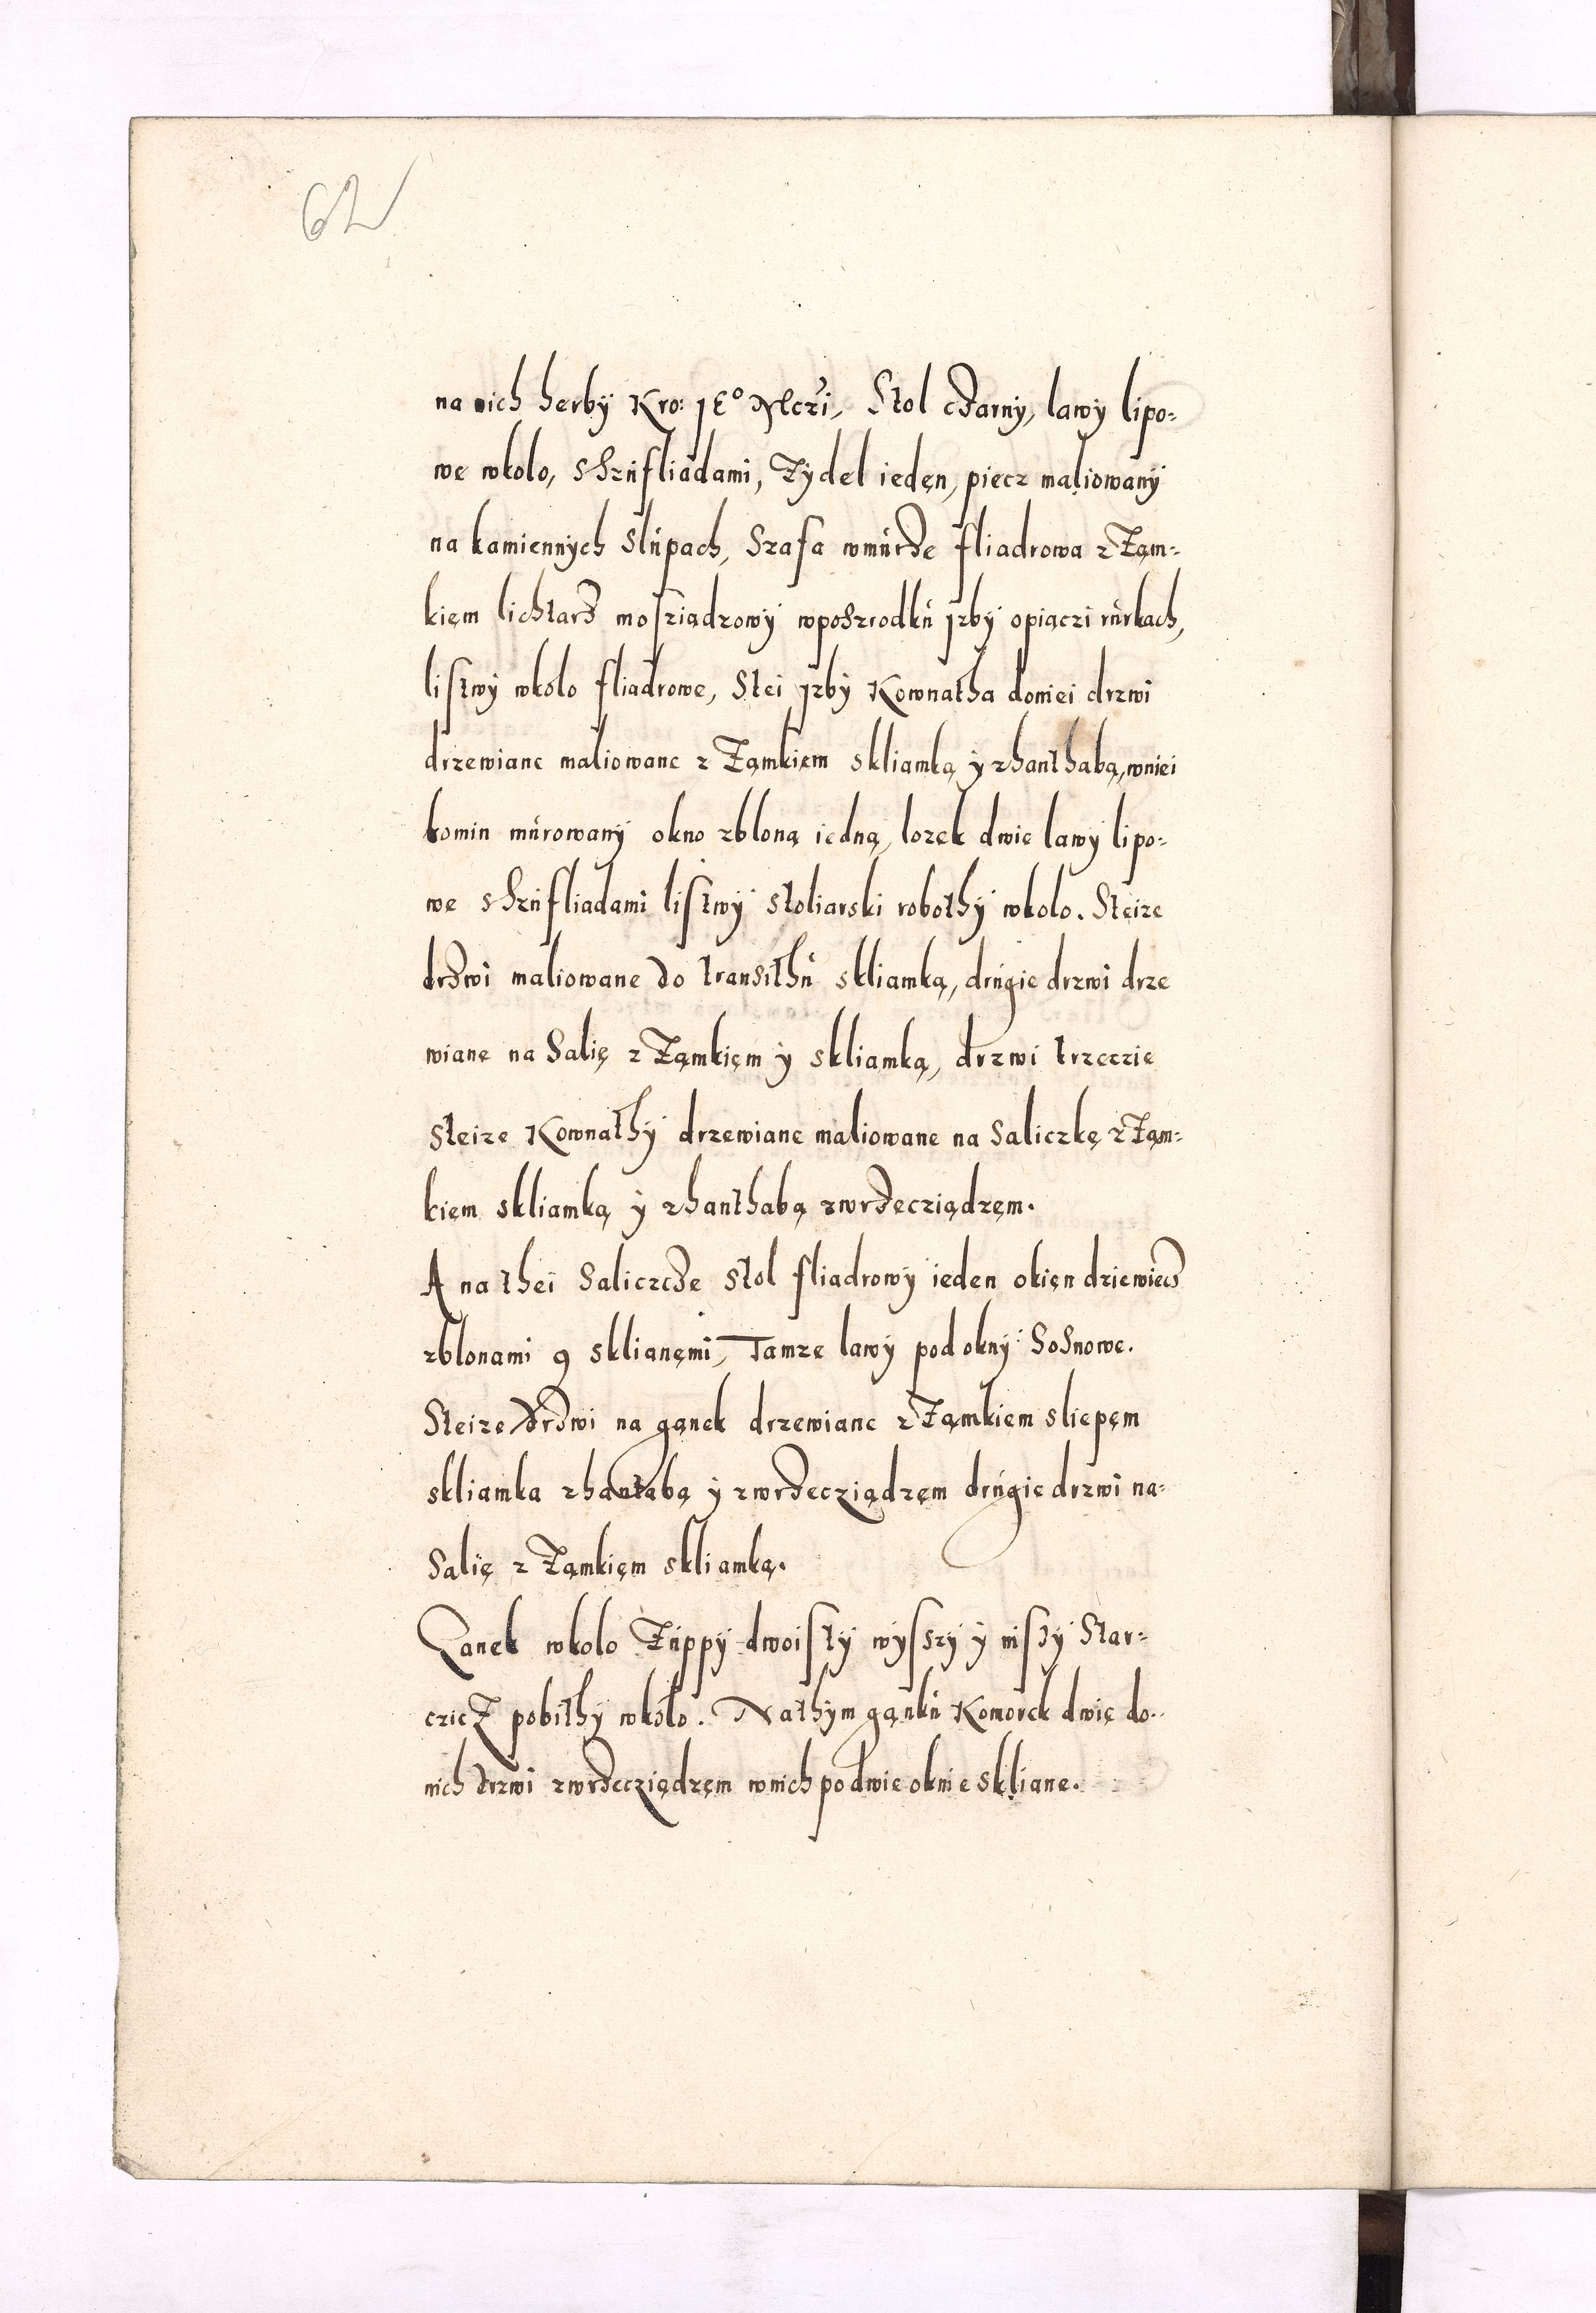 62
na nich herby Kro: JEº Mczi, Stol czarny, lawy lipo=
we wkolo, sszufliadami, Zydel ieden, piecz maliowany
na kamiennych slupach, Szafa wmurze fliadrowa z Zam=
kiem lichtarz mosziądzowy wposzrodku jzby opiączi rurkach,
listwy wkolo fliadrowe, Stei jzby Kownatha doniei drzwi
drzewiane maliowane z Zamkięm skliamką y zhanthabą, wniei
komin murowany okno zbloną iedną, lozek dwie lawy lipo=
we sszufliadami listwy stoliarski robothy wkolo. Steize
drzwi maliowane do transithu skliamką, drugie drzwi drze
wiane na Salię z Zamkięm y skliamką, drzwi trzeczie
steize Kownathy drzewiane maliowane na Saliczkę z Zam=
kiem skliamką y zhanthabą zwrzecziądzęm.
A na thei Saliczcze stol fliadrowy ieden okięn dziewiecz
zblonami 9 sklianęmi, Tamze lawy pod okny Sosnowe.
Steize drzwi na ganek drzewiane z Zamkiem sliepęm
skliamka zhantabą y zwrzecziądzęm drugie drzwi na=
Salię z Zamkięm skliamką.
Ganek wkolo Zuppy dwoisty wysszy y niszy Star=
czicz pobithy wkolo. Nathym gąnku Komorek dwię do=
nich drzwi zwrzecziędzęm wnich po dwie oknie skliane.